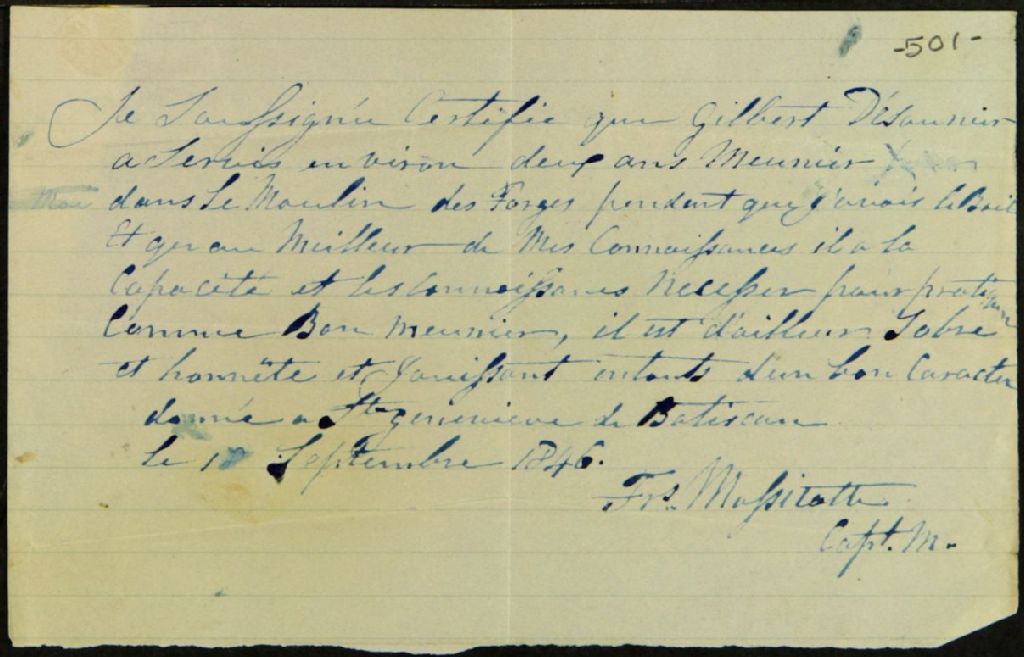 -501-
Je Soussignée Certifie que Gilbert Désaunier
a Servis environ deux ans Meunier
dans Le Moulin des Forges pendent que J'avois le Bail
Et que au Meilleur de Mes Connaissances il a la
Capacété et les Connaissances Necesser pour pratiquer
Comme Bon meunier, il est d'ailleur Sobre
et honnête et Jouissant entouts d'un bon Caracter
donné a Ste genevieve de Batiscan
le Septembre 1846.
Frs. Massicotte
Capt. M.